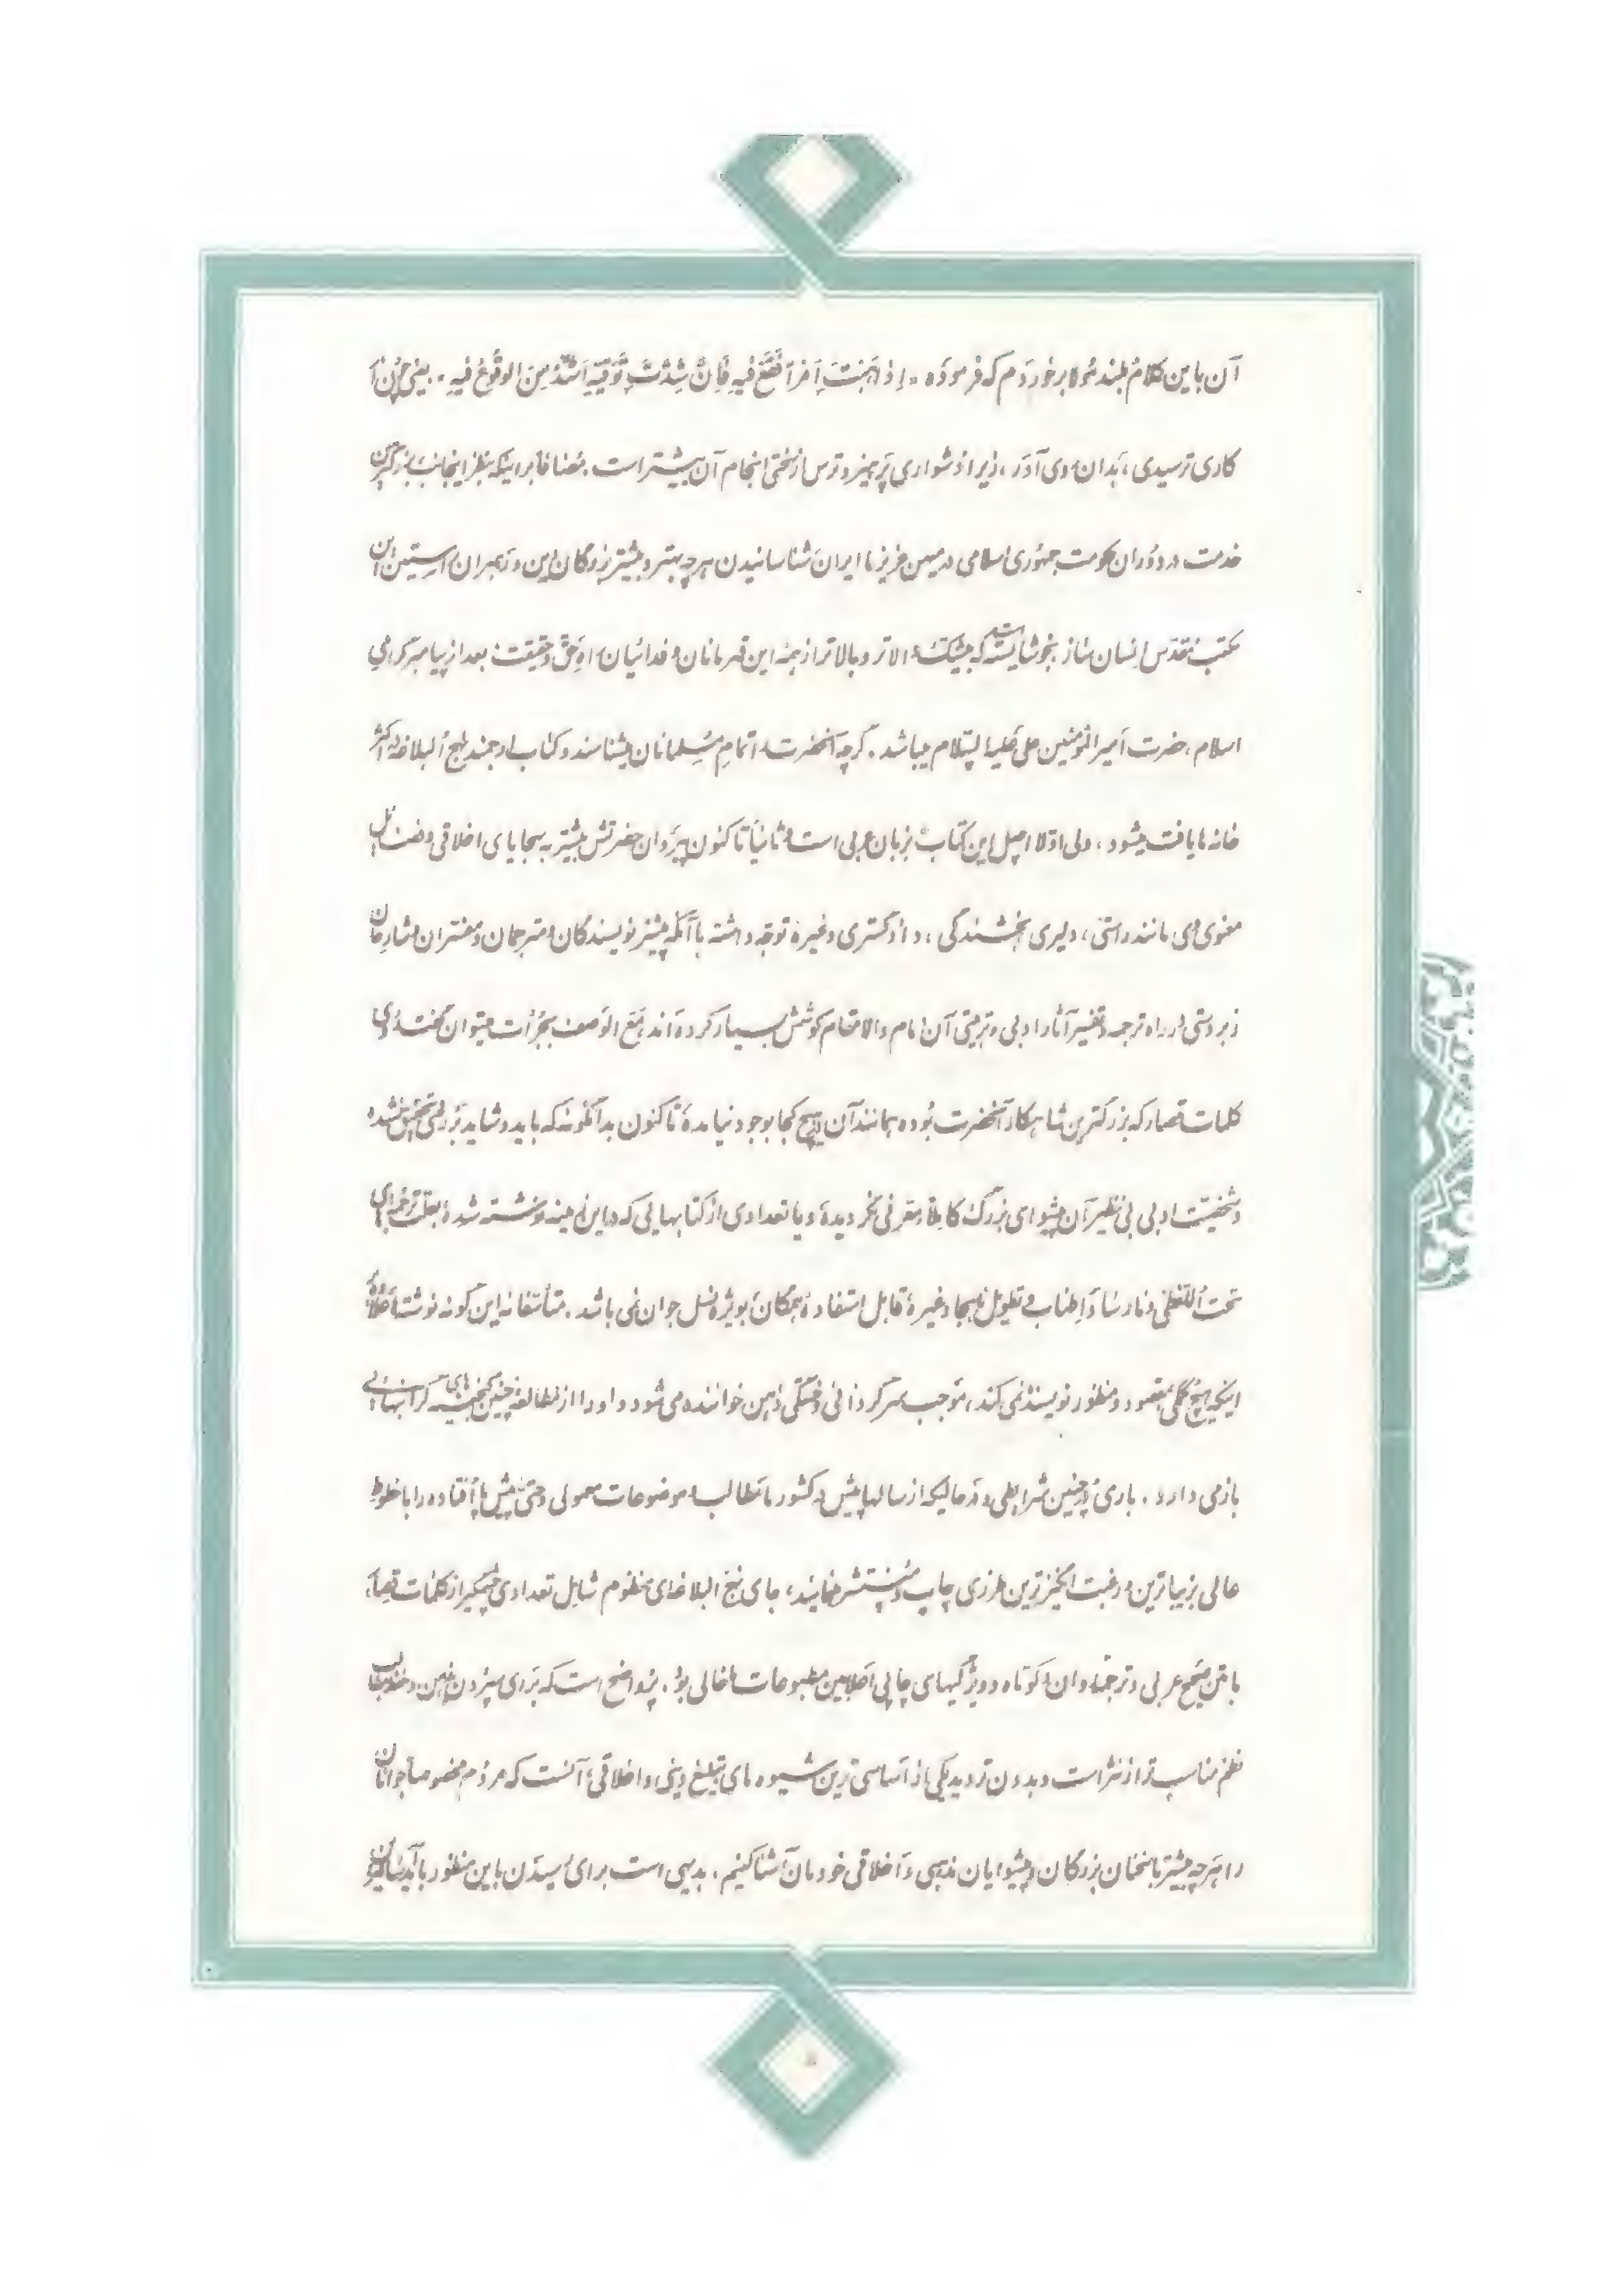 آن باین کلام بلند مولا برخوردم که فرموده «إذا هِبْتَ أَمْراً فَقَعْ فیهِ فَإنَّ شِدَّةَ تَوَقّیهِ أَشَدُّ مِنَ الوقُوعِ فیهِ» یعنی چون از
کاری ترسیدی، بدان روی آور، زیرا دشواری پرهیز و ترس از سختی انجام آن بیشتر است. مضافاً براینکه بنظر اینجانب بزرگترین
خدمت در دوران حکومت جمهوری اسلامی در میهن عزیز ما ایران شناسانیدن هر چه بهتر و بیشتر بزرگان دین و رهبران راستین این
مکتب مقدس انسان ساز بنحو شایسته است که بیشک والاتر و بالاتر از همه این قهرمانان و فدائیان راه حق و حقیقت، بعد از پیامبر گرامی
اسلام، حضرت أمیرالمؤمنین علی علیه السلام میباشد. گرچه آنحضرت را تمام مسلمانان میشناسند و کتاب ارجمند نهج البلاغه در اکثر
خانه ها یافت میشود، ولی اولا اصل این کتاب بزبان عربی است و ثانیاً تا کنون پیروان حضرتش بیشتر به سجایای اخلاقی و فضائل
معنوی وی مانند راستی، دلیری، بخشندگی، دادگستری و غیره توجه داشته با آنکه بیشتر نویسندگان و مترجمان و مفسران و شارحان
زبردستی در راه ترجمه و تفسیر آثار ادبی و تربیتی آن امام والامقام کوشش بسیار کرده اند مع الوصف بجرأت میتوان گفت در
کلمات قصار که بزرگترین شاهکار آنحضرت بوده و همانند آن در هیچ کجا بوجود نیامده تا کنون بدانگونه که باید و شاید بررسی و تحقیق نشده
و شخصیت ادبی بی نظیر آن پیشوای بزرگ کاملا معرفی نگردیده و یا تعدادی از کتابهایی که در این زمینه نوشته شده بعلت ترجمه های
تحت اللفظی و نارسا و اطناب و تطویل نابجا و غیره قابل استفاده همگان بویژه نسل جوان نمی باشد. متأسفانه این گونه نوشته ها علاوه بر
اینکه هیچ کمکی بمقصود و منظور نویسنده نمی کند، موجب سرگردانی و خستگی ذهن خواننده می شود و او را از مطالعه چنین گنجینه های گرانبهائی
باز می دارد. باری در چنین شرایطی و در حالیکه از سالها پیش در کشور ما مطالب و موضوعات معمولی و حتی پیش پا افتاده را با خطوط
عالی بزیباترین و رغبت انگیزترین طرزی چاپ و منتشر مینمایند، جای نهج البلاغه ای منظوم شامل تعدادی چشمگیر از کلمات قصار،
با متن صحیح عربی و ترجمه روان و کوتاه و ویژگیهای چاپی اصلا بین مطبوعات ما خالی بود. پر واضح است که برای سپردن بذهن و حفظ مطالب
نظم مناسب تر از نثر است و بدون تردید یکی از اساسی ترین شیوه های تبلیغ دینی و اخلاقی، آنست که مردم بخصوص جوانان
را هر چه بیشتر با سخنان بزرگان و پیشوایان مذهبی و اخلاقی خودمان آشنا کنیم. بدیهی است برای رسیدن باین منظور باید